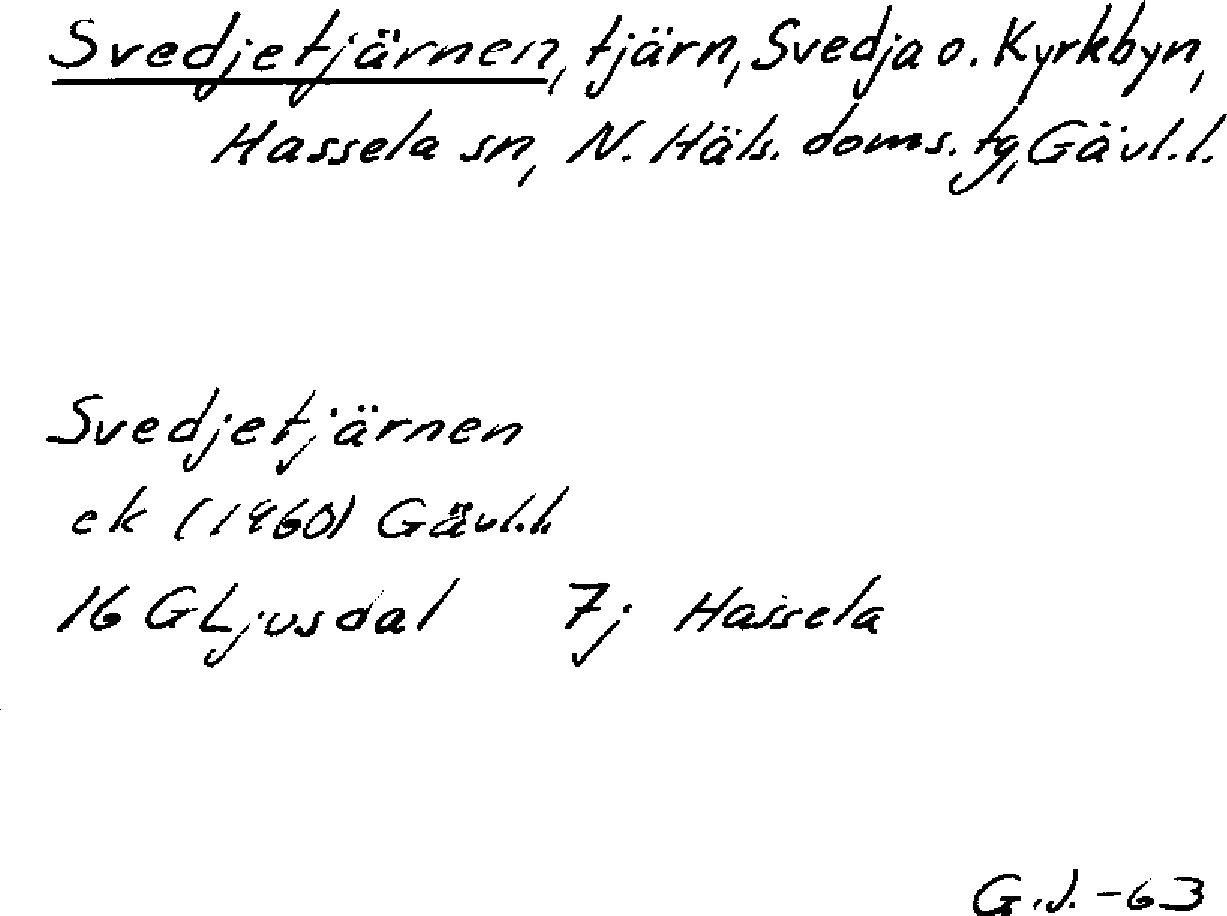 Svedjetjärnen, tjärn, Svedja o. Kyrkbyn,
Hassela sn, N. Häls. doms. tg, Gävl. l.
Svedjetjärnen
ek (1960) Gävl. l.
16 G Ljusdal 7j Hassela
G.J. -63